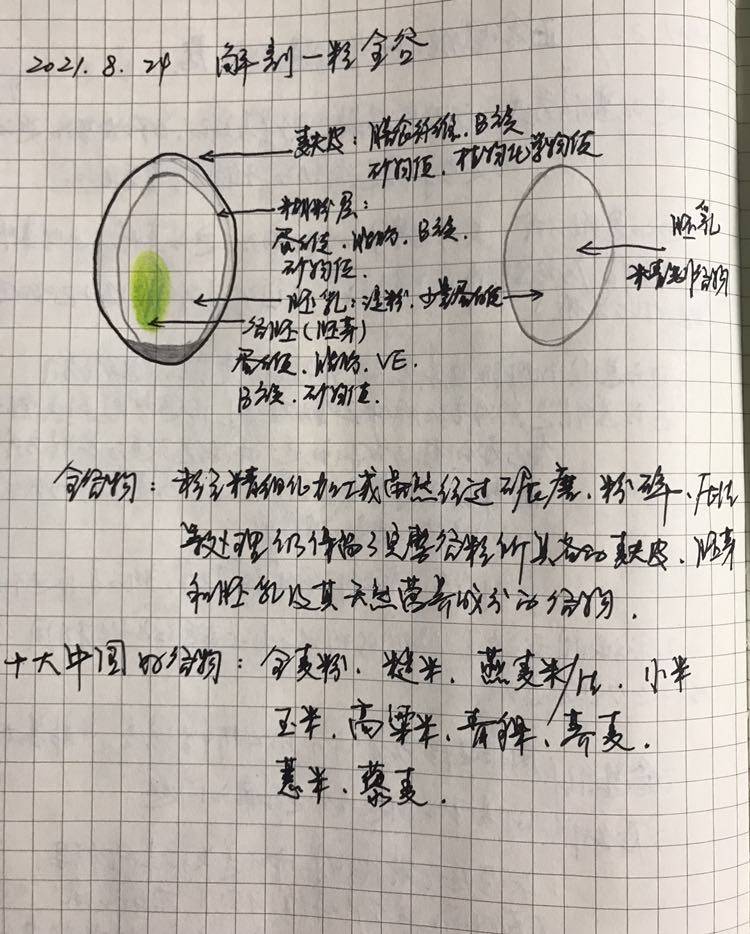 2021.8.24 解剖一粒全谷
麦夫皮：膳食纤维、B族
矿物质、植物化学物质
糊粉层：
蛋白质、脂肪、B族、
矿物质。
胚乳：淀粉、少量蛋白质
谷胚(胚芽)
蛋白质、脂肪、VE.
B族、矿物质.
胚乳
米精制谷物
全谷物：未经精细化加工或虽然经过碾磨、粉碎、压片
等处理仍保留了完整谷粒所具备的麸皮、胚芽
和胚乳及其天然营养成分的谷物.
十大中国好谷物：全麦粉、糙米、燕麦米/片、小米
玉米、高粱米、青稞、荞麦、
薏米、藜麦.